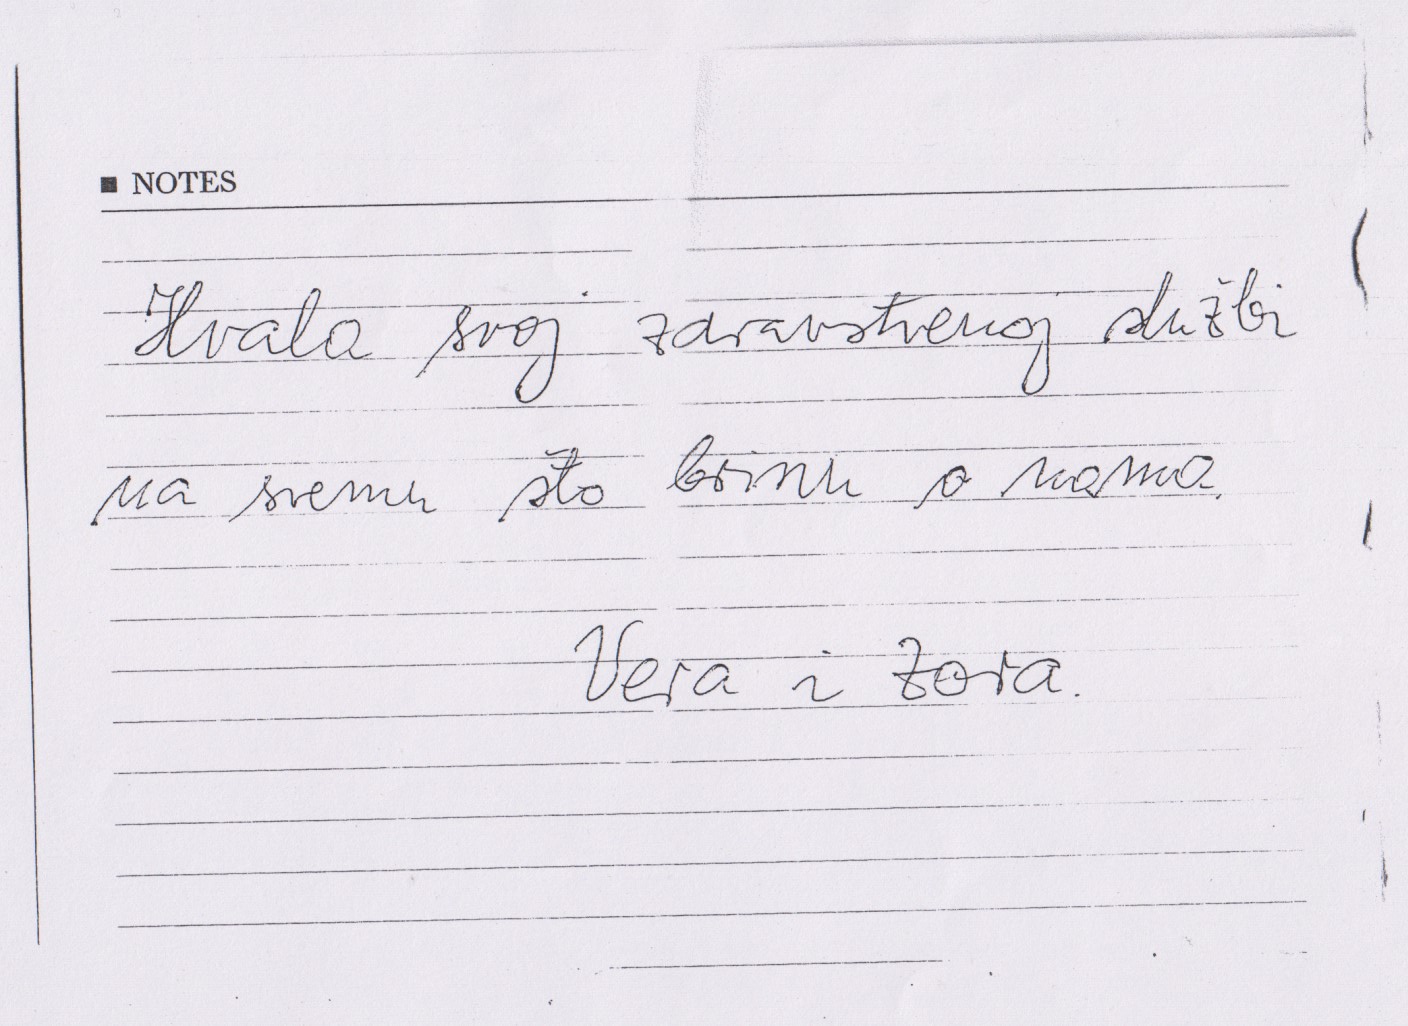 NOTES
Hvala svoj zdravstvenoj službi
na svemu što brinu o nama.
Vera i Zora.